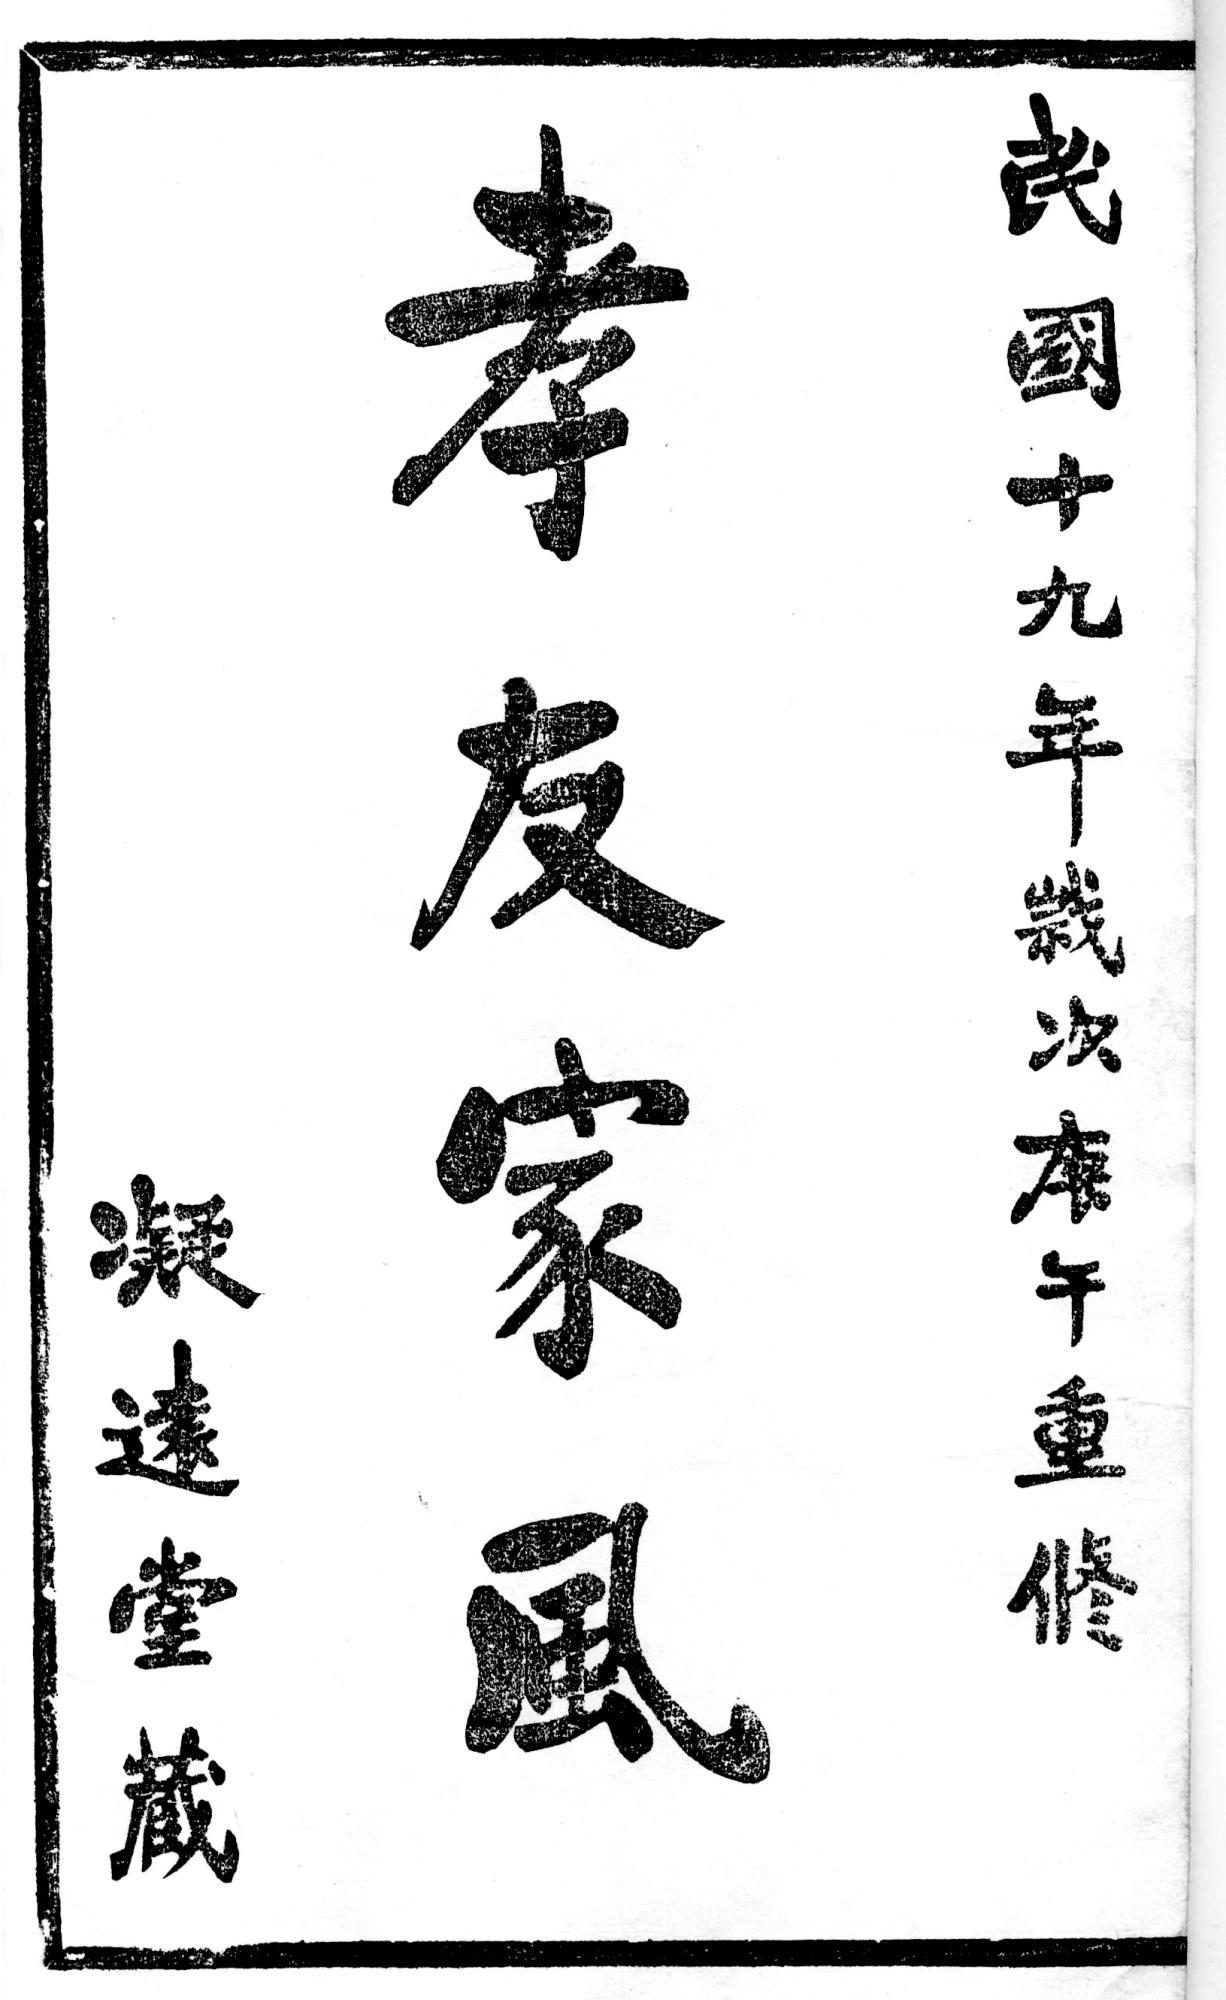 民國十九年歲次庚午重修
孝友家風
凝遠堂藏